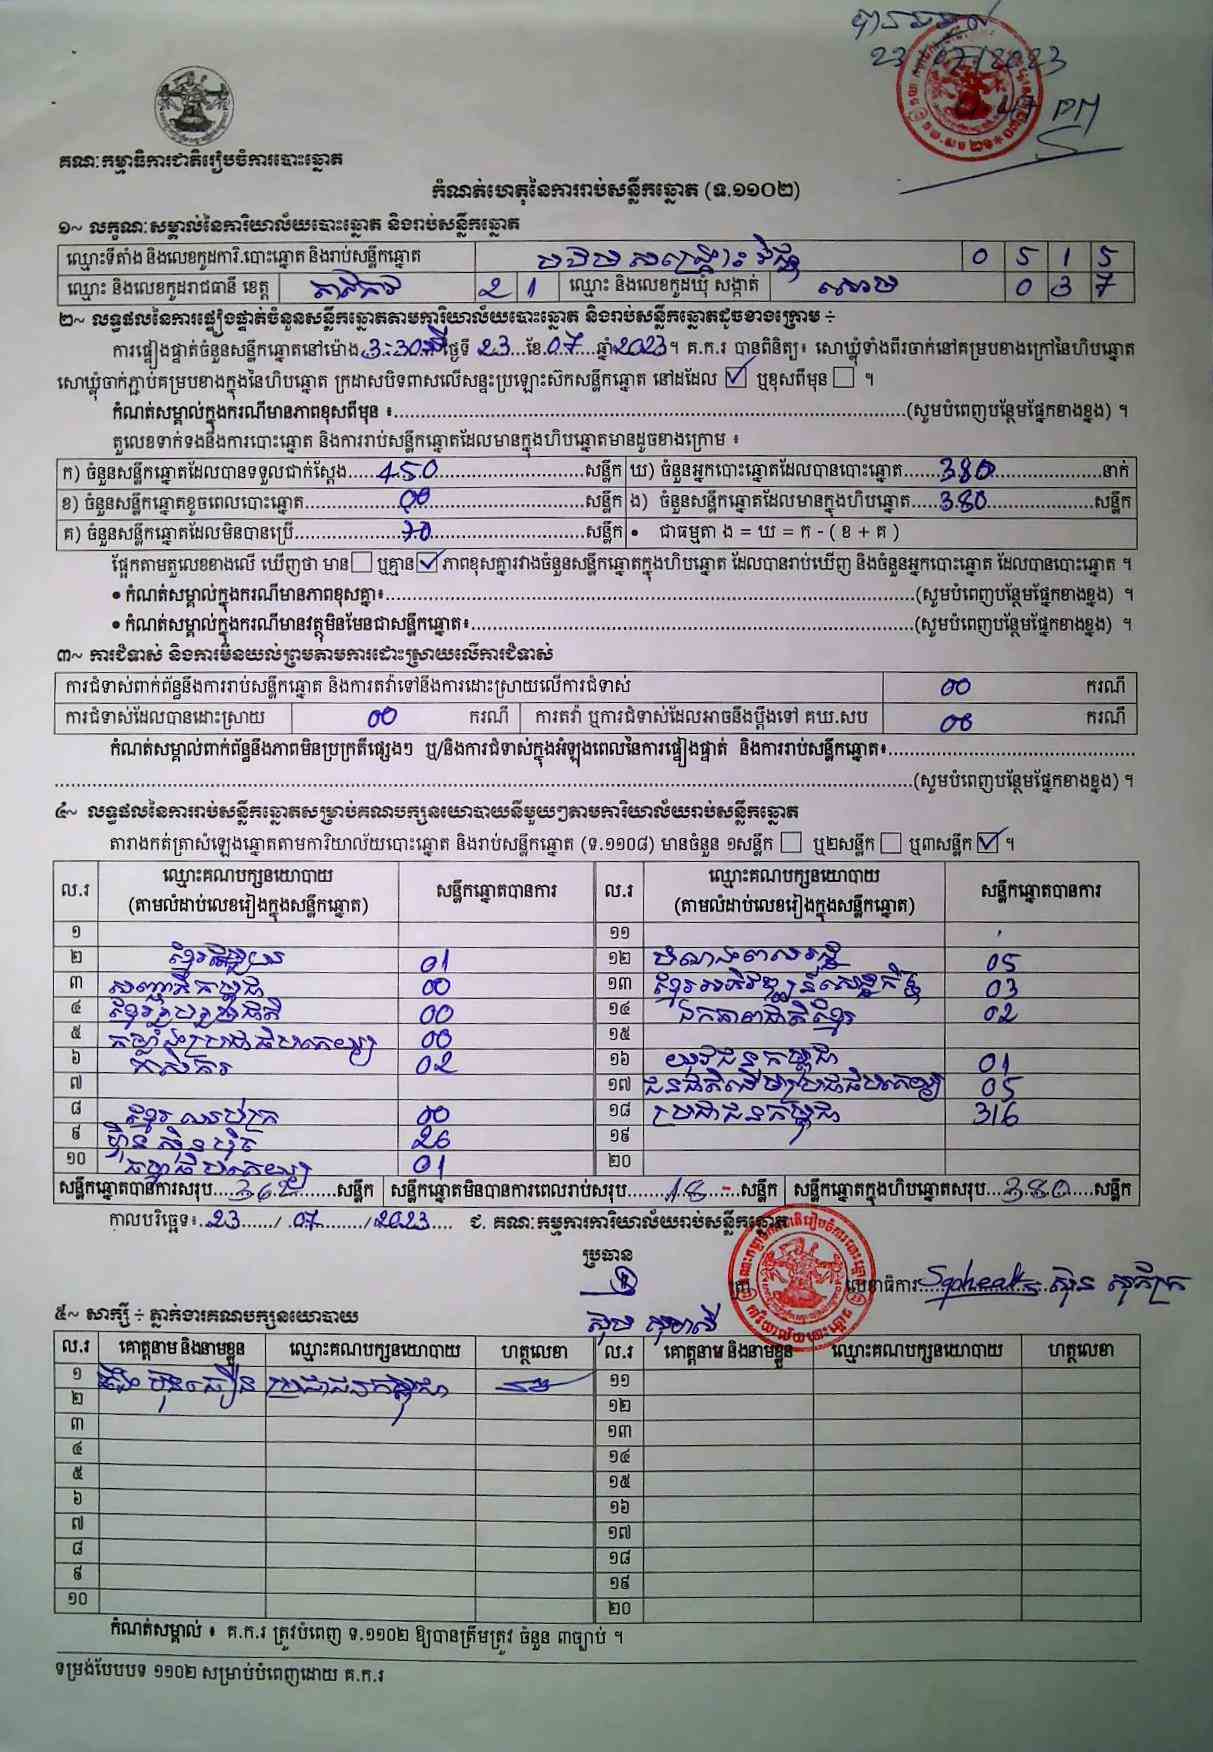 23/07/2023
PM
គណៈកម្មាធិការជាតិរៀបចំការបោះឆ្នោត
កំណត់ហេតុនៃការរាប់សន្លឹកឆ្នោត (ទ.១១០២)
១~ លក្ខណៈសម្គាល់នៃការិយាល័យបោះឆ្នោត និងរាប់សន្លឹកឆ្នោត
ឈ្មោះទីតាំង និងលេខកូដការិ.បោះឆ្នោត និងរាប់សន្លឹកឆ្នោត 0 5 1 5
ឈ្មោះ និងលេខកូដរាជធានី ខេត្ត 2 1 ឈ្មោះ និងលេខកូដឃុំ សង្កាត់ 0 3 7
២~ លទ្ធផលនៃការផ្ទៀងផ្ទាត់ចំនួនសន្លឹកឆ្នោតតាមការិយាល័យបោះឆ្នោត និងរាប់សន្លឹកឆ្នោតដូចខាងក្រោម ÷
ការផ្ទៀងផ្ទាត់ចំនួនសន្លឹកឆ្នោតនៅម៉ោង 3:30 ថ្ងៃទី 23 ខែ 07 ឆ្នាំ 2023 ។ គ.ក.រ បានពិនិត្យ៖ សោឃ្លុំទាំងពីរចាក់នៅគម្របខាងក្រៅនៃហិបឆ្នោត
សោឃ្លុំចាក់ភ្ជាប់គម្របខាងក្នុងនៃហិបឆ្នោត ក្រដាសបិទពាសលើសន្ទះប្រឡោះស៊កសន្លឹកឆ្នោត នៅដដែល ☑ ឬខុសពីមុន ☐ ។
កំណត់សម្គាល់ក្នុងករណីមានភាពខុសពីមុន ៖ (សូមបំពេញបន្ថែមផ្នែកខាងខ្នង) ។
តួលេខទាក់ទងនឹងការបោះឆ្នោត និងការរាប់សន្លឹកឆ្នោតដែលមានក្នុងហិបឆ្នោតមានដូចខាងក្រោម ៖
ក) ចំនួនសន្លឹកឆ្នោតដែលបានទទួលជាក់ស្តែង 450 សន្លឹក ឃ) ចំនួនអ្នកបោះឆ្នោតដែលបានបោះឆ្នោត 380 នាក់
ខ) ចំនួនសន្លឹកឆ្នោតខូចពេលបោះឆ្នោត 00 សន្លឹក ង) ចំនួនសន្លឹកឆ្នោតដែលមានក្នុងហិបឆ្នោត 380 សន្លឹក
គ) ចំនួនសន្លឹកឆ្នោតដែលមិនបានប្រើ 70 សន្លឹក • ជាធម្មតា ង = ឃ = ក - ( ខ + គ )
ផ្អែកតាមតួលេខខាងលើ ឃើញថា មាន ☐ ឬគ្មាន ☑ ភាពខុសគ្នារវាងចំនួនសន្លឹកឆ្នោតក្នុងហិបឆ្នោត ដែលបានរាប់ឃើញ និងចំនួនអ្នកបោះឆ្នោត ដែលបានបោះឆ្នោត ។
• កំណត់សម្គាល់ក្នុងករណីមានភាពខុសគ្នា៖ (សូមបំពេញបន្ថែមផ្នែកខាងខ្នង) ។
• កំណត់សម្គាល់ក្នុងករណីមានវត្ថុមិនមែនជាសន្លឹកឆ្នោត៖ (សូមបំពេញបន្ថែមផ្នែកខាងខ្នង) ។
៣~ ការជំទាស់ និងការមិនយល់ព្រមតាមការដោះស្រាយលើការជំទាស់
ការជំទាស់ពាក់ព័ន្ធនឹងការរាប់សន្លឹកឆ្នោត និងការតវ៉ាទៅនឹងការដោះស្រាយលើការជំទាស់ 00 ករណី
ការជំទាស់ដែលបានដោះស្រាយ 00 ករណី ការតវ៉ា ឬការជំទាស់ដែលអាចនឹងប្តឹងទៅ គឃ.សប 00 ករណី
កំណត់សម្គាល់ពាក់ព័ន្ធនឹងភាពមិនប្រក្រតីផ្សេងៗ ឬ/និងការជំទាស់ក្នុងអំឡុងពេលនៃការផ្ទៀងផ្ទាត់ និងការរាប់សន្លឹកឆ្នោត៖
(សូមបំពេញបន្ថែមផ្នែកខាងខ្នង) ។
៤~ លទ្ធផលនៃការរាប់សន្លឹកឆ្នោតសម្រាប់គណបក្សនយោបាយនីមួយៗតាមការិយាល័យរាប់សន្លឹកឆ្នោត
តារាងកត់ត្រាសំឡេងឆ្នោតតាមការិយាល័យបោះឆ្នោត និងរាប់សន្លឹកឆ្នោត (ទ.១១០៨) មានចំនួន ១សន្លឹក ☐ ឬ២សន្លឹក ☐ ឬ៣សន្លឹក ☑ ។
ល.រ ឈ្មោះគណបក្សនយោបាយ (តាមលំដាប់លេខរៀងក្នុងសន្លឹកឆ្នោត) សន្លឹកឆ្នោតបានការ ល.រ ឈ្មោះគណបក្សនយោបាយ (តាមលំដាប់លេខរៀងក្នុងសន្លឹកឆ្នោត) សន្លឹកឆ្នោតបានការ
១ ១១
២ 01 ១២ 05
៣ សញ្ជាតិកម្ពុជា 00 ១៣ ខ្មែរអភិវឌ្ឍន៍សេដ្ឋកិច្ច 03
៤ ខ្មែររួបរួមជាតិ 00 ១៤ ឯកភាពជាតិខ្មែរ 02
៥ កម្លាំងប្រជាធិបតេយ្យ 00 ១៥
៦ កសិករ 02 ១៦ យុវជនកម្ពុជា 01
៧ ១៧ ជនជាតិដើមប្រជាធិបតេយ្យ 05
៨ ខ្មែរឈប់ក្រ 00 ១៨ ប្រជាជនកម្ពុជា 316
៩ ហ្វ៊ុនស៊ិនប៉ិច 26 ១៩
១០ ធម្មាធិបតេយ្យ 01 ២០
សន្លឹកឆ្នោតបានការសរុប 362 សន្លឹក សន្លឹកឆ្នោតមិនបានការពេលរាប់សរុប 18 សន្លឹក សន្លឹកឆ្នោតក្នុងហិបឆ្នោតសរុប 380 សន្លឹក
កាលបរិច្ឆេទ៖ 23 / 07 / 2023 ជ. គណៈកម្មការការិយាល័យរាប់សន្លឹកឆ្នោត
ប្រធាន
លេខាធិការ
៥~ សាក្សី ÷ ភ្នាក់ងារគណបក្សនយោបាយ
ល.រ គោត្តនាម និងនាមខ្លួន ឈ្មោះគណបក្សនយោបាយ ហត្ថលេខា ល.រ គោត្តនាម និងនាមខ្លួន ឈ្មោះគណបក្សនយោបាយ ហត្ថលេខា
១ ប្រជាជនកម្ពុជា ១១
២ ១២
៣ ១៣
៤ ១៤
៥ ១៥
៦ ១៦
៧ ១៧
៨ ១៨
៩ ១៩
១០ ២០
កំណត់សម្គាល់ ៖ គ.ក.រ ត្រូវបំពេញ ទ.១១០២ ឱ្យបានត្រឹមត្រូវ ចំនួន ៣ច្បាប់ ។
ទម្រង់បែបបទ ១១០២ សម្រាប់បំពេញដោយ គ.ក.រ